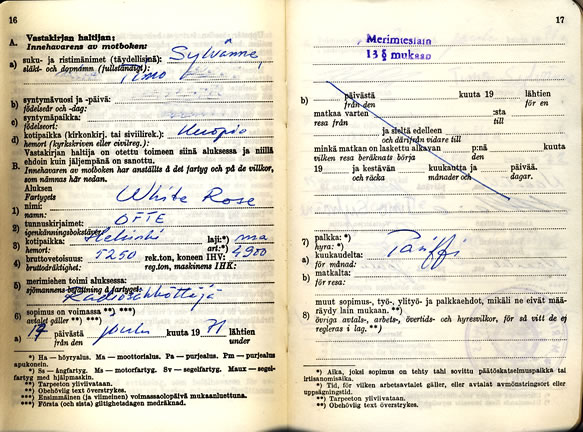 16
Vastakirjan haltijan:
A. Innehavarens av motboken:
a) suku- ja ristimänimet (täydellisinä): Sylvänne,
släkt- och dopnamn (fullständigt): Timo
b) syntymävuosi ja -päivä:
födelseår och -dag:
c) syntymäpaikka:
födelseort:
d) kotipaikka (kirkonkirj. tai siviilirek.): Kuopio
hemort (kyrkskriven eller civilreg.):
Vastakirjan haltija on otettu toimeen siinä aluksessa ja niillä
ehdoin kuin jäljempänä on sanottu.
B. Innehavaren av motboken har anställts å det fartyg och på de villkor,
som nämnas här nedan.
Aluksen
Fartygets
1) nimi: White Rose
namn:
2) tunnuskirjaimet: OFTE
igenkänningsbokstäver:
3) kotipaikka: Helsinki laji:*) ma
hemort: art:*)
4) bruttovetoisuus: 5250 rek.ton, koneen IHV: 4900
bruttodräktighet: reg.ton, maskinens IHK:
5) merimiehen toimi aluksessa:
sjömannens befattning å fartyget:
Radiosähköttäjä
6) sopimus on voimassa **) ***)
avtalet gäller **) ***)
a) päivästä kuuta 19 71 lähtien
från den under
*) Ha = höyryalus. Ma = moottorialus. Pa = purjealus. Pm = purjealus
apukonein.
*) Sa = ångfartyg. Ms = motorfartyg. Sv = segelfartyg. Maux = segel-
fartyg med hjälpmaskin.
**) Tarpeeton yliviivataan.
**) Obehövlig text överstrykes.
***) Ensimmäinen (ja viimeinen) voimassaolopäivä mukaanluettuna.
***) Första (och sista) giltighetsdagen medräknad.
17
Merimieslain
13 § mukaan
b) päivästä kuuta 19 lähtien
från den för en
matkaa varten :sta
resa från till
ja sieltä edelleen
och därifrån vidare till
minkä matkan on laskettu alkavan p:nä kuuta
vilken resa beräknats börja den
19 ja kestävän kuukautta ja päivää.
och räcka månader och dagar.
7) palkka: *)
hyra: *)
a) kuukaudelta: Tariffi
för månad:
b) matkalta:
för resa:
8) muut sopimus-, työ-, ylityö- ja palkkaehdot, mikäli ne eivät mää-
räydy lain mukaan. **)
övriga avtals-, arbets-, övertids- och hyresvilkor, för så vitt de ej
regleras i lag. **)
*) Aika, joksi sopimus on tehty tahi sovittu päätöskatselmuspaikka tai
irtisanomisaika.
*) Tid, för vilken arbetsavtalet gäller, eller avtalat avmönstringsort eller
uppsägningstid.
**) Tarpeeton yliviivataan.
**) Obehövlig text överstrykes.